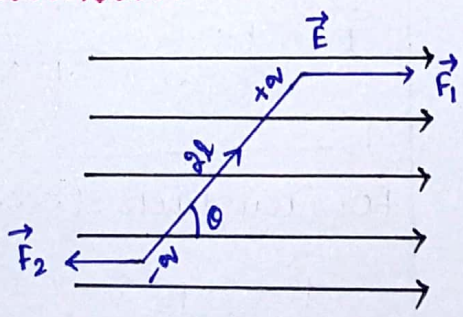 E⃗
+q
F⃗₁
2l
θ
F⃗₂
-q